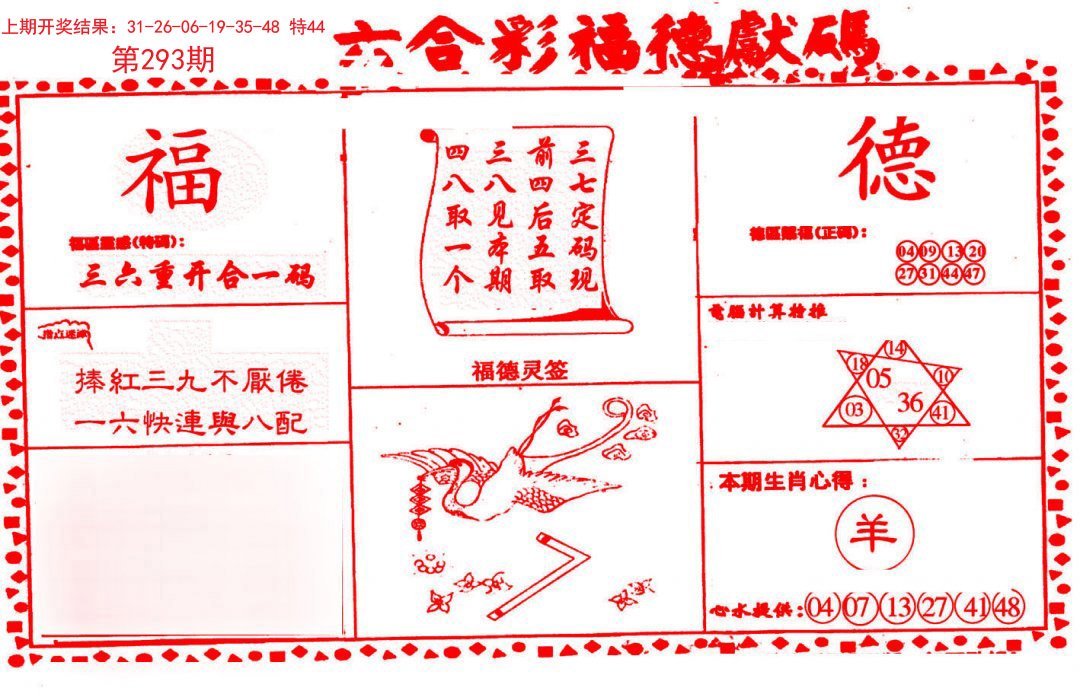 上期开奖结果：31-26-06-19-35-48 特44
第293期
六合彩福德獻碼
福
福區靈感(特碼)：
三六重开合一码
指点迷津
捧紅三九不厭倦
一六快連與八配
三七定码现
前四后五取
三八见本期
四八取一个
福德灵签
德
德區賜福(正碼)：
04 09 13 20
27 31 44 47
電腦計算精推
14
18
05
10
03
36
41
32
本期生肖心得：
羊
心水提供：04 07 13 27 41 48